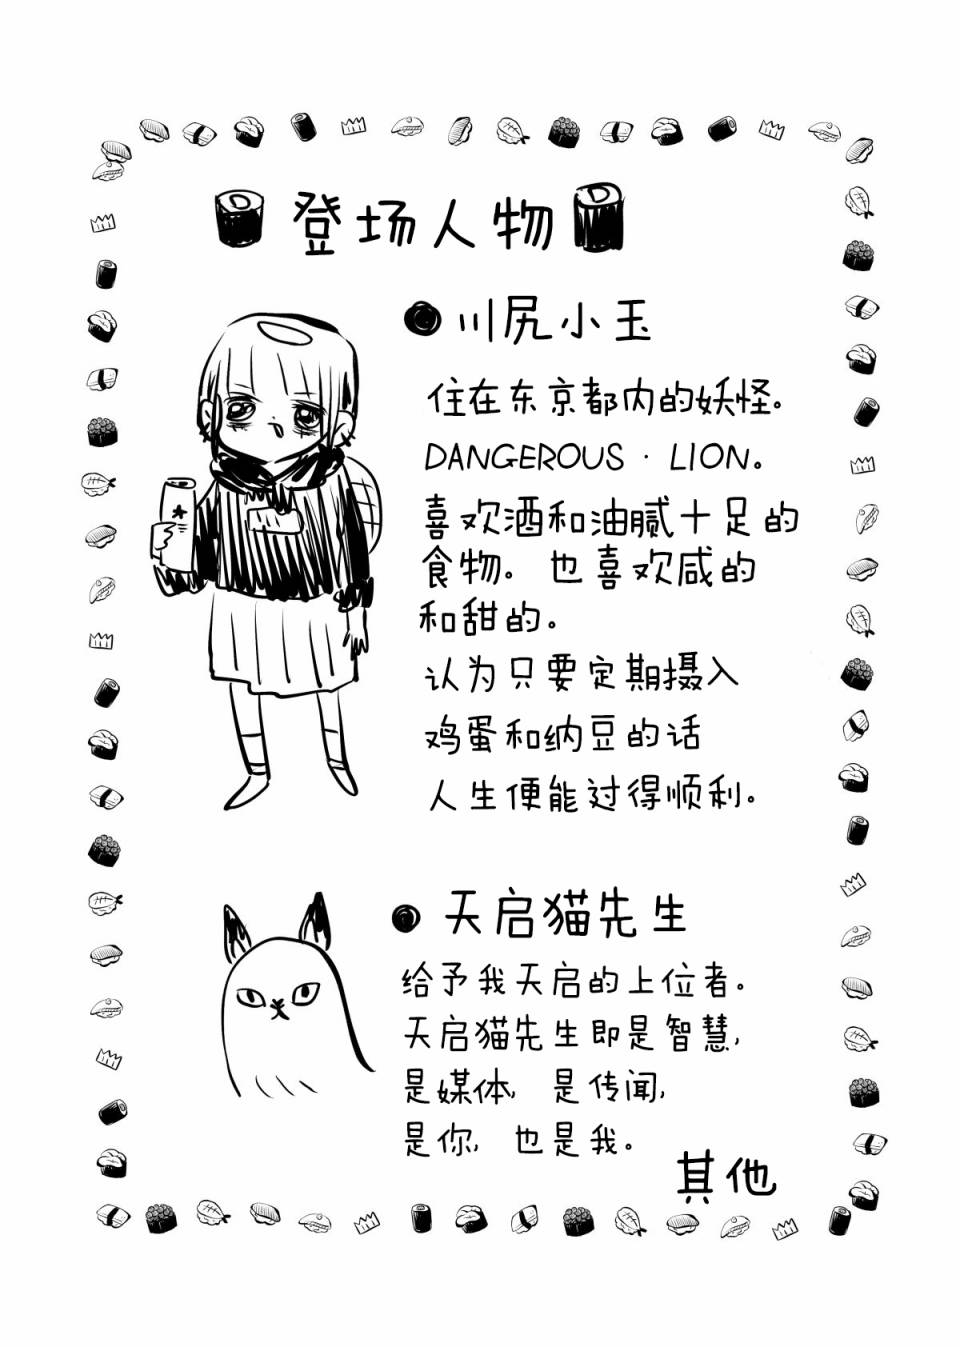 登场人物
川尻小玉
住在东京都内的妖怪。
DANGEROUS · LION。
喜欢酒和油腻十足的
食物。也喜欢咸的
和甜的。
认为只要定期摄入
鸡蛋和纳豆的话
人生便能过得顺利。
天启猫先生
给予我天启的上位者。
天启猫先生即是智慧,
是媒体, 是传闻,
是你, 也是我。
其他